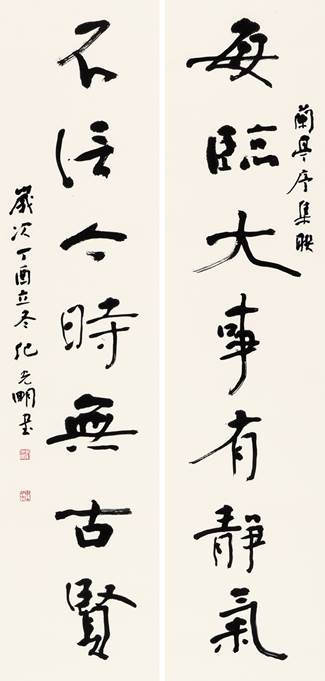 蘭亭序集联
每臨大事有靜氣
不信今時無古賢
歲次丁酉立冬纪光明书